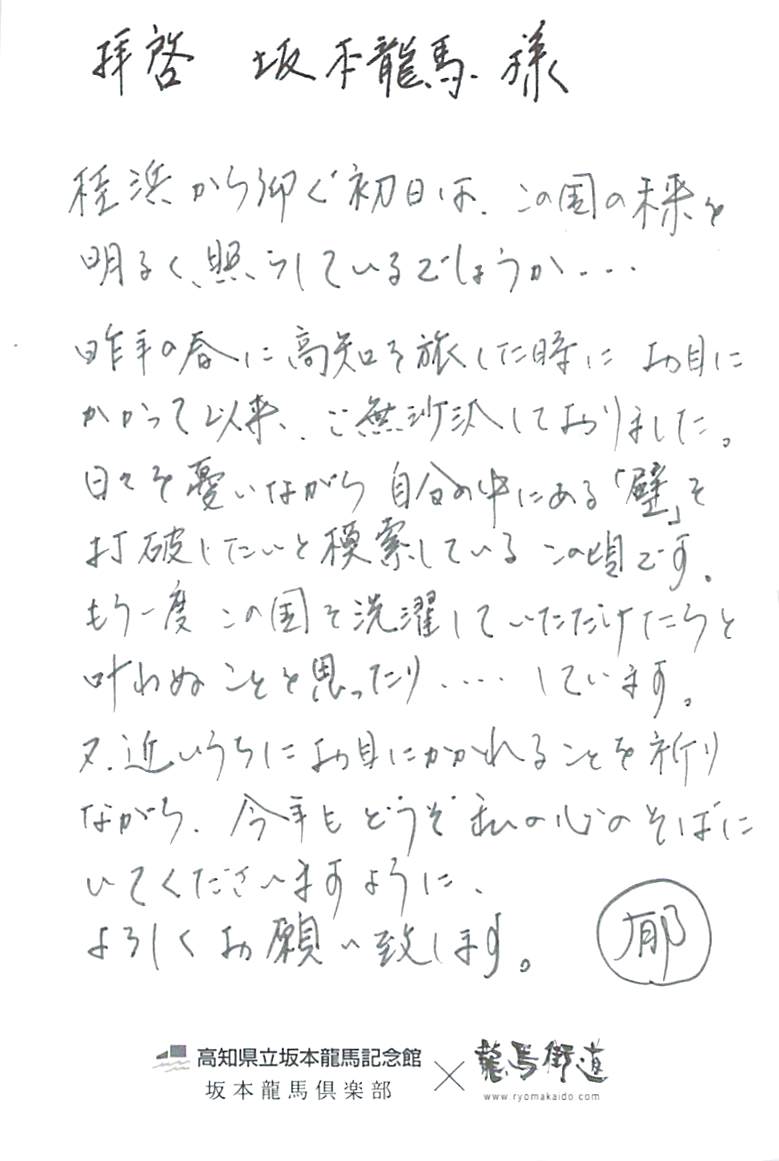 拝啓 坂本龍馬 様
桂浜から仰ぐ初日は、この国の未来を
明るく、照らしているでしょうか・・・
昨年の春に高知を旅した時に お目に
かかって以来、ご無沙汰しておりました。
日々を憂いながら 自分の中にある「壁」を
打破したいと模索している この頃です。
もう一度 この国を洗濯していただけたらと
叶わぬことを思ったり・・・・・しています。
又、近いうちにお目にかかれることを祈り
ながら、今年もどうぞ私の心のそばに
いてくださいますように、
よろしくお願い致します。 郁
高知県立坂本龍馬記念館
坂本龍馬倶楽部 × 龍馬街道
www.ryomakaido.com